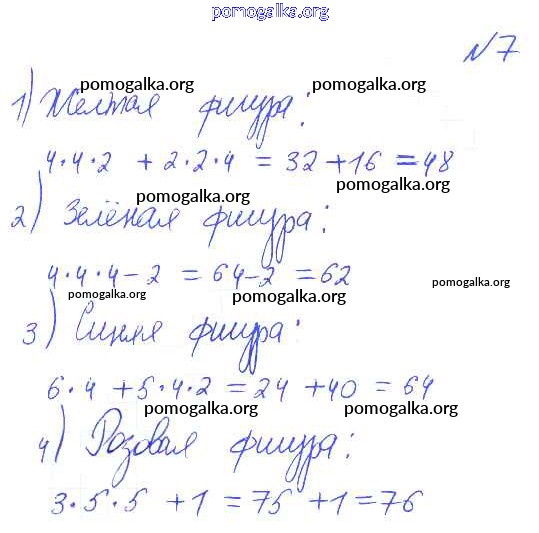 pomogalka.org
№7
1) Жёлтая фигура:
pomogalka.org pomogalka.org
4·4·2 + 2·2·4 = 32 + 16 = 48
pomogalka.org pomogalka.org
2) Зелёная фигура:
4·4·4 - 2 = 64 - 2 = 62
pomogalka.org pomogalka.org pomogalka.org
3) Синяя фигура:
6·4 + 5·4·2 = 24 + 40 = 64
pomogalka.org pomogalka.org
4) Розовая фигура:
3·5·5 + 1 = 75 + 1 = 76